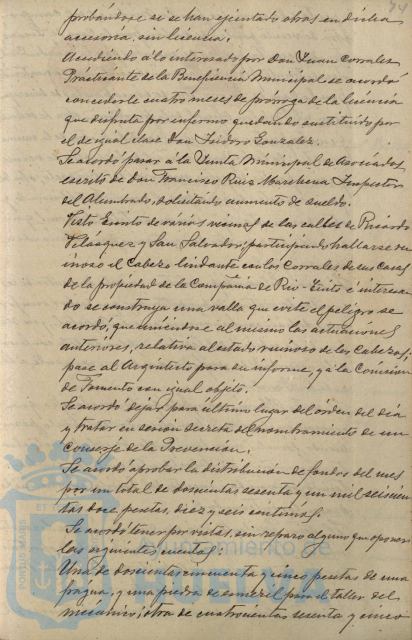 74
probándose si se han ejecutado obras en dicha
accesoria, sin licencia.
Accediendo á lo interesado por Don Juan Corrales
Practicante de la Beneficencia Municipal se acordó
concederle cuatro meses de prórroga de la licencia
que disfruta por enfermo quedando sustituido por
el de igual clase Don Isidoro Gonzalez.
Se acordó pasar á la Junta Municipal de Asociados
escrito de Don Francisco Ruiz Marchena Inspector
del Alumbrado, solicitando aumento de sueldo.
Visto Escrito de varios vecinos de las calles de Ricardo
Velazquez y San Salvador, participando hallarse ru
inoso el Cabezo lindante con los Corrales de sus casas
de la propiedad de la Compañia de Rio-Tinto é interesan
do se construya una valla que evite el peligro se
acordó, que uniendose al mismo las actuaciones
anteriores, relativa al estado ruinoso de los Cabezos,
pase al Arquitecto para su informe, y á la Comision
de Fomento con igual objeto.
Se acordó dejar para ultimo lugar del órden del dia
y tratar en sesion secreta del nombramiento de un
conserje de la Prevencion.
Se acordó aprobar la distribucion de fondos del mes
por un total de doscientas sesenta y un mil seiscien
tas doce pesetas, diez y seis centimos.
Se acordó tener por vistas, sin reparo alguno que oponer
las siguientes cuentas:
Una de doscientas cincuenta y cinco pesetas de una
fragua, y una piedra de esmeril para el taller del
mecanico; otra de cuatrocientas sesenta y cinco
PORTUS MARIS ET
Ayuntamiento de